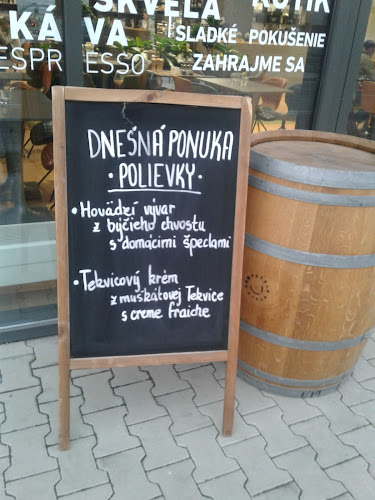 SKVELÁ
KÁVA
ESPRESSO
KÚTIK
SLADKÉ POKUŠENIE
ZAHRAJME SA
DNEŠNÁ PONUKA
• POLIEVKY •
• Hovädzí vývar
z býčieho chvostu
s domácimi špeclami
• Tekvicový krém
z muškátovej Tekvice
s creme fraiche